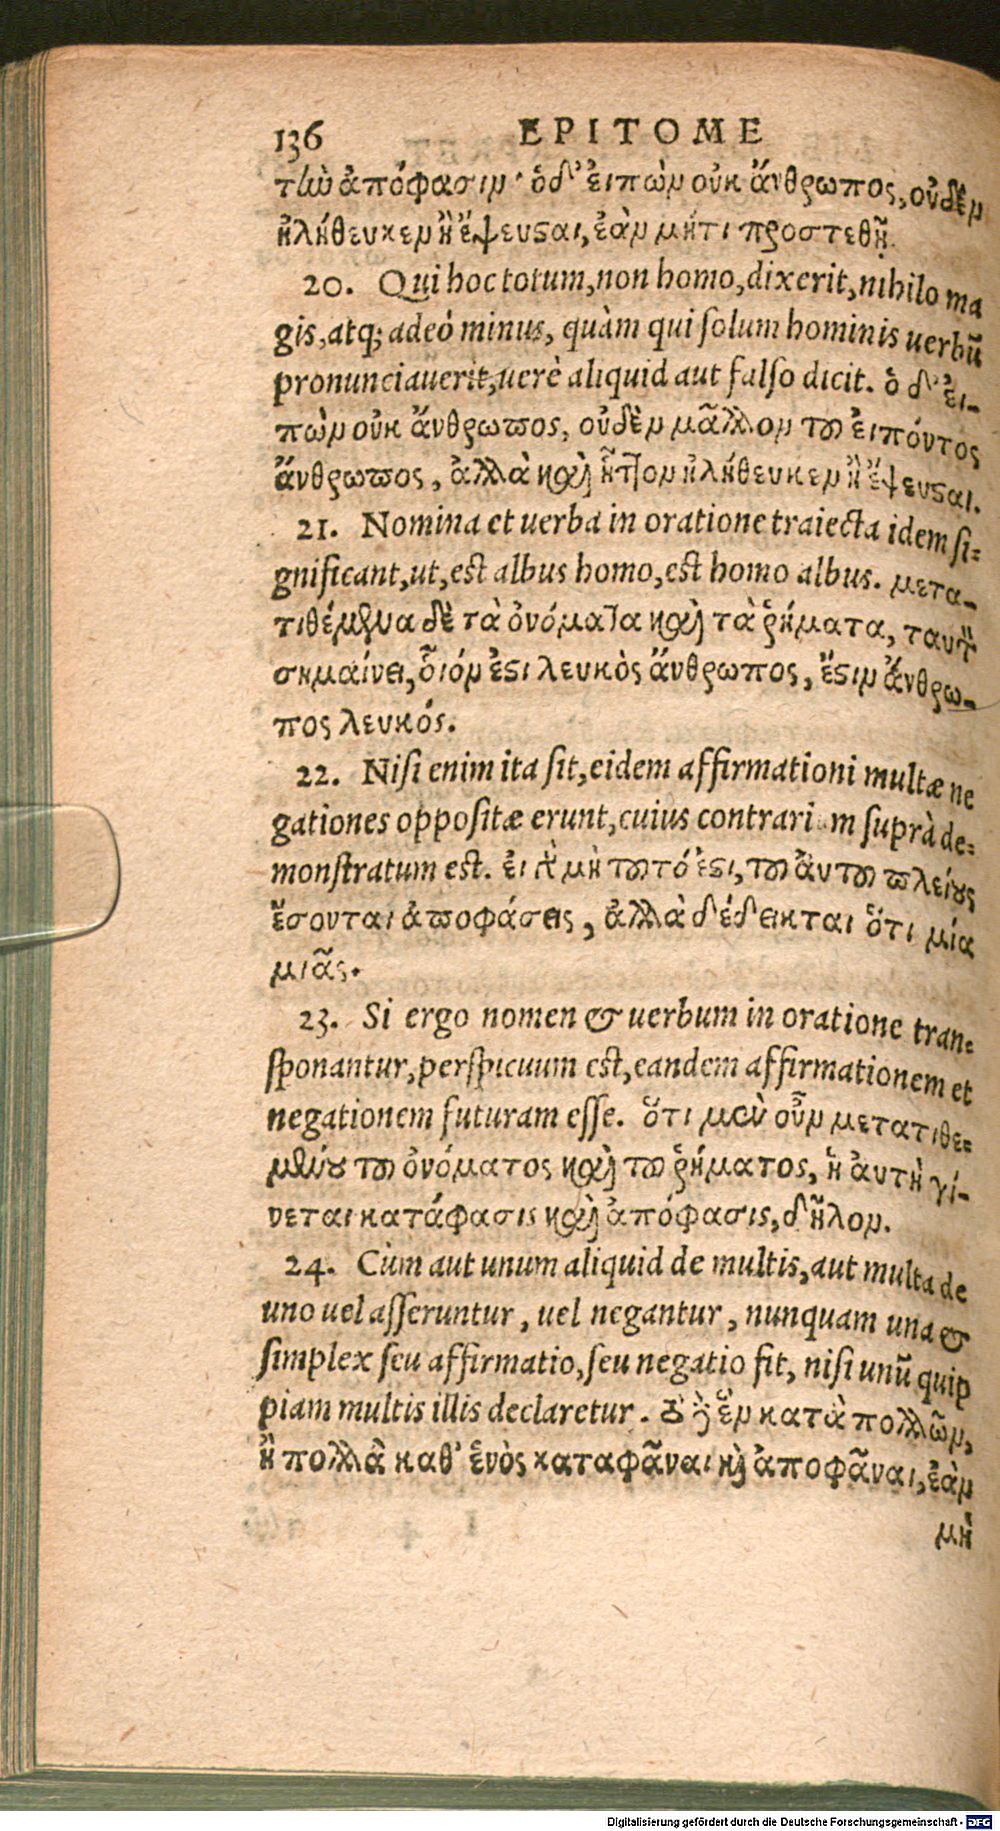 136 EPITOME
τὼ ἀπόφασιν· ὁ δ' εἰπὼν οὐκ ἄνθρωπος, οὐδὲν
ἠλήθευκεν ἢ ἔψευσται, ἐὰν μήτι προστεθῇ.
20. Qui hoc totum, non homo, dixerit, nihilo ma
gis, atq; adeò minus, quàm qui solum hominis uerbū
pronunciauerit, uerè aliquid aut falso dicit. ὁ δ' εἰ-
πὼν οὐκ ἄνθρωπος, οὐδὲν μᾶλλον τοῦ εἰπόντος
ἄνθρωπος, ἀλλὰ καὶ ἧττον ἠλήθευκεν ἢ ἔψευσται.
21. Nomina et uerba in oratione traiecta idem si=
gnificant, ut, est albus homo, est homo albus. μετα-
τιθέμενα δὲ τὰ ὀνόματα καὶ τὰ ῥήματα, ταυτὸ
σημαίνει, οἷόν ἐστι λευκὸς ἄνθρωπος, ἔστιν ἄνθρω-
πος λευκός.
22. Nisi enim ita sit, eidem affirmationi multæ ne
gationes oppositæ erunt, cuius contrarium suprà de=
monstratum est. εἰ γὰρ μὴ τοῦτό ἐστι, τοῦ αὐτοῦ πλείους
ἔσονται ἀποφάσεις, ἀλλὰ δέδεικται ὅτι μία
μιᾶς.
23. Si ergo nomen & uerbum in oratione tran=
sponantur, perspicuum est, eandem affirmationem et
negationem futuram esse. ὅτι μὲν οὖν μετατιθε=
μένου τοῦ ὀνόματος καὶ τοῦ ῥήματος, ἡ αὐτὴ γί-
νεται κατάφασις καὶ ἀπόφασις, δῆλον.
24. Cùm aut unum aliquid de multis, aut multa de
uno uel asseruntur, uel negantur, nunquam una &
simplex seu affirmatio, seu negatio fit, nisi unū quip
piam multis illis declaretur. τὸ δὲ ἓν κατὰ πολλῶν,
ἢ πολλὰ καθ' ἑνὸς καταφᾶναι καὶ ἀποφᾶναι, ἐὰν
μὴ
Digitalisierung gefördert durch die Deutsche Forschungsgemeinschaft - DFG